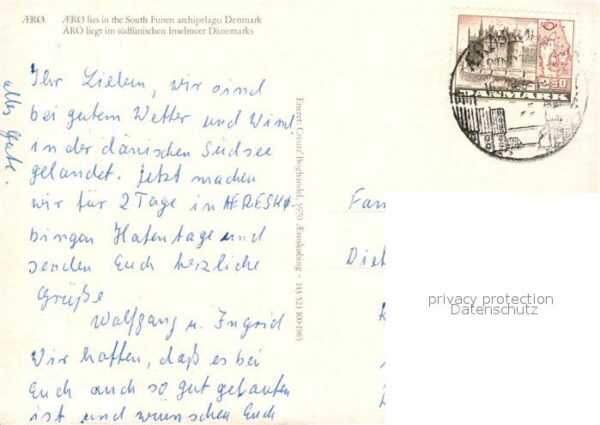 ÆRØ.
ÆRØ lies in the South Funen archipelago Denmark
ÄRÖ liegt im südfünischen Inselmeer Dänemarks
Ihr Lieben, wir sind
bei gutem Wetter und Wind
in der dänischen Südsee
gelandet. Jetzt machen
wir für 2 Tage in AERESKØ-
bingen Hafentage und
senden Euch herzliche
Grüße
Wolfgang u. Ingrid
Wir hoffen, daß es bei
Euch auch so gut gelaufen
ist und wünschen Euch
alles Gute.
Eneret: Creutz' Boghandel, 5970 Ærøskøbing - 143 523 100-1983
DANMARK
Fam
privacy protection
Datenschutz